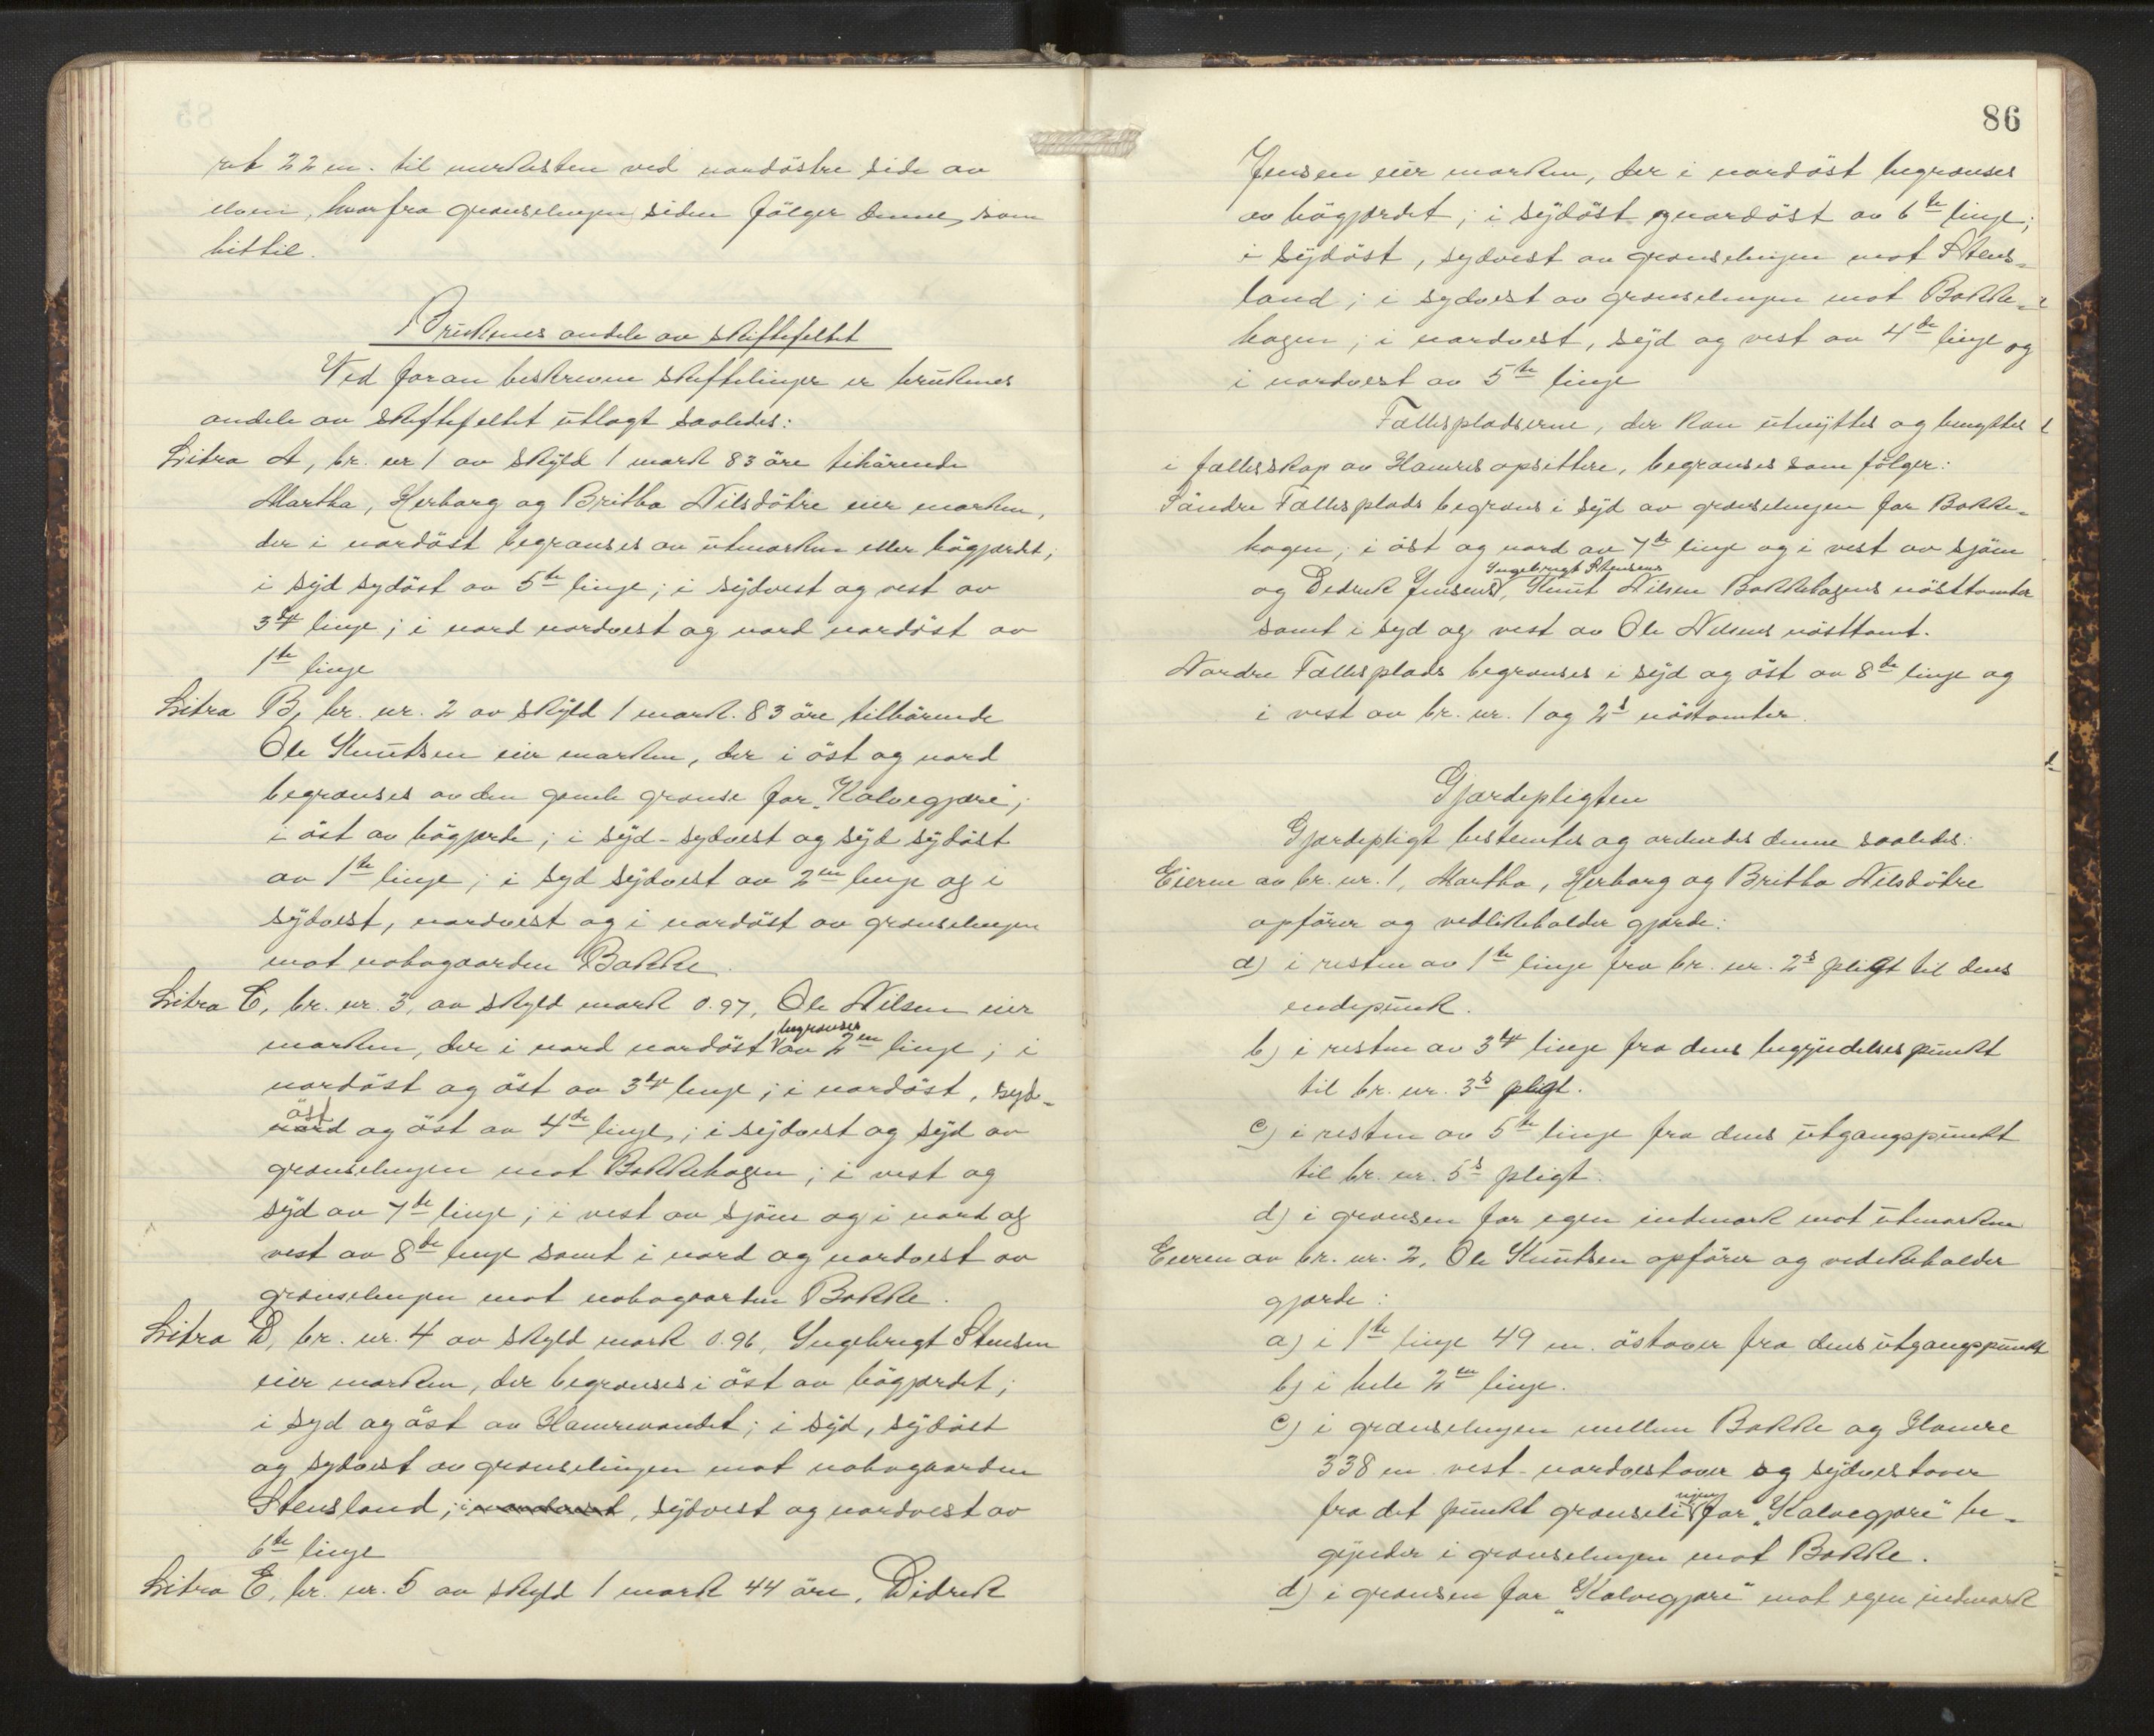 ret 22 m. til merkesten ved nordöstre side av
elven, hvorfra grænselinjen siden fölger denne, som
hittil.
Brukenes andele av skiftefeltet
Ved foran beskrevne skiftelinjer er brukenes
andele av skiftefeltet utlagt saaledes:
Litra A, br. nr 1 av skyld 1 mark 83 öre tihörende
Martha, Herborg og Britha Nilsdötre eier marken,
der i nordöst begrænses av utmarken eller högjærdet;
i syd sydöst av 5te linje; i sydvest og vest av
3dje linje; i nord nordvest og nord nordöst av
1te linje
Litra B, br. nr. 2 av skyld 1 mark. 83 öre tilhörende
Ole Knutsen eier marken, der i öst og nord
begrænses av den gamle grænse for „Kalvegjære";
i öst av högjærde; i syd-sydvest og syd sydöst
av 1te linje; i syd sydvest av 2en linje og i
sydvest, nordvest og i nordöst av grænselinjen
mot nabogaarden Bakke.
Litra C, br. nr. 3, av skyld mark 0.97, Ole Nilsen eier
marken, der i nord nordöst begrænses av 2en linje; i
nordöst og öst av 3dje linje; i nordöst, syd-
öst nord og öst av 4de linje; i sydvest og syd av
grænselinjen mot Bakkehagen; i vest og
syd av 7de linje; i vest av sjöen og i nord og
vest av 8de linje samt i nord og nordvest av
grænselinjen mot nabogaarden Bakke.
Litra D, br. nr. 4 av skyld mark 0.96, Ingebrigt Stensen
eier marken, der begrænses i öst av högjærdet;
i syd og öst av Hamrevandet; i syd, sydöst
og sydvest av grænselinjen mot nabogaarden
Stensland; i nordvest, sydvest og nordvest av
6te linje
Litra E, br. nr. 5 av skyld 1 mark 44 öre, Didrik
86
Jensen eier marken, der i nordöst begrænses
av högjærdet; i sydöst og nordöst av 6te linje;
i sydöst, sydvest av grænselinjen mot Stens-
land; i sydvest av grænselinjen mot Bakke-
hagen; i nordvest, syd og vest av 4de linje og
i nordvest av 5te linje
Fællespladserne, der kan utnyttes og benyttes
i fællesskap av Hamres opsittere, begrænses som fölger:
Söndre Fællesplads begræns i syd av grænselinjen for Bakke-
hagen; i öst og nord av 7de linje og i vest av sjöen
og Dedrik Jensens, Ingebrigt Stensens, Knut Nilsen Bakkehagens nösttomter
samt i syd og vest av Ole Nilsens nösttomt.
Nordre Fællesplads begrænses i syd og öst av 8de linje og
i vest av br. nr. 1 og 2s nöstomter.
Gjærdepligten
Gjærdepligt bestemtes og ordnedes denne saaledes:
Eierne av br. nr. 1, Martha, Herborg og Britha Nilsdötre
opförer og vedlikeholder gjærde:
a) i resten av 1te linje fra br. nr. 2s pligt til dens
endepunk.
b) i resten av 3dje linje fra dens begyndelsespunkt
til br. nr. 3s pligt.
c) i resten av 5te linje fra dens utgangspunkt
til br. nr. 5s pligt.
d) i grænsen for egen indmark mot utmarken
Eieren av br. nr. 2, Ole Knutsen opförer og vedikeholder
gjærde:
a) i 1te linje 49 m. östover fra dens utgangspunkt
b) i hele 2en linje.
c) i grænselinjen mellem Bakke og Hamre
338 m vest-nordvestover og sydvestover
fra det punkt grænselinjen for „Kalvegjære" be-
gynder i grænselinjen mot Bakke.
d) i grænsen for „Kalvegjære" mot egen indmark